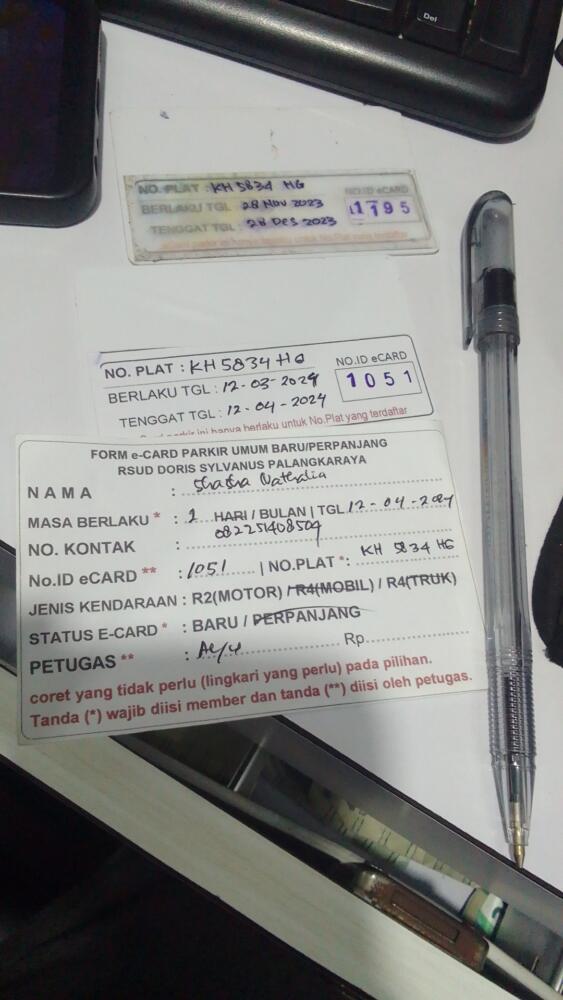 Del
NO. PLAT : KH 5834 HG NO.ID eCARD
BERLAKU TGL : 28 Nov 2023 1195
TENGGAT TGL : 28 Des 2023
hanya berlaku untuk No.Plat yang terdaftar
NO. PLAT : KH 5834 HG NO.ID eCARD
BERLAKU TGL : 12-03-2024 1051
TENGGAT TGL : 12-04-2024
parkir ini hanya berlaku untuk No.Plat yang terdaftar
FORM e-CARD PARKIR UMUM BARU/PERPANJANG
RSUD DORIS SYLVANUS PALANGKARAYA
NAMA : Shasha Nathalia
MASA BERLAKU * : 1 HARI / BULAN | TGL 12-04-2024
NO. KONTAK : 082251408504
No.ID eCARD ** : 1051 | NO.PLAT *: KH 5834 HG
JENIS KENDARAAN : R2(MOTOR) / R4(MOBIL) / R4(TRUK)
STATUS E-CARD * : BARU / PERPANJANG
PETUGAS ** : Rp.
coret yang tidak perlu (lingkari yang perlu) pada pilihan.
Tanda (*) wajib diisi member dan tanda (**) diisi oleh petugas.